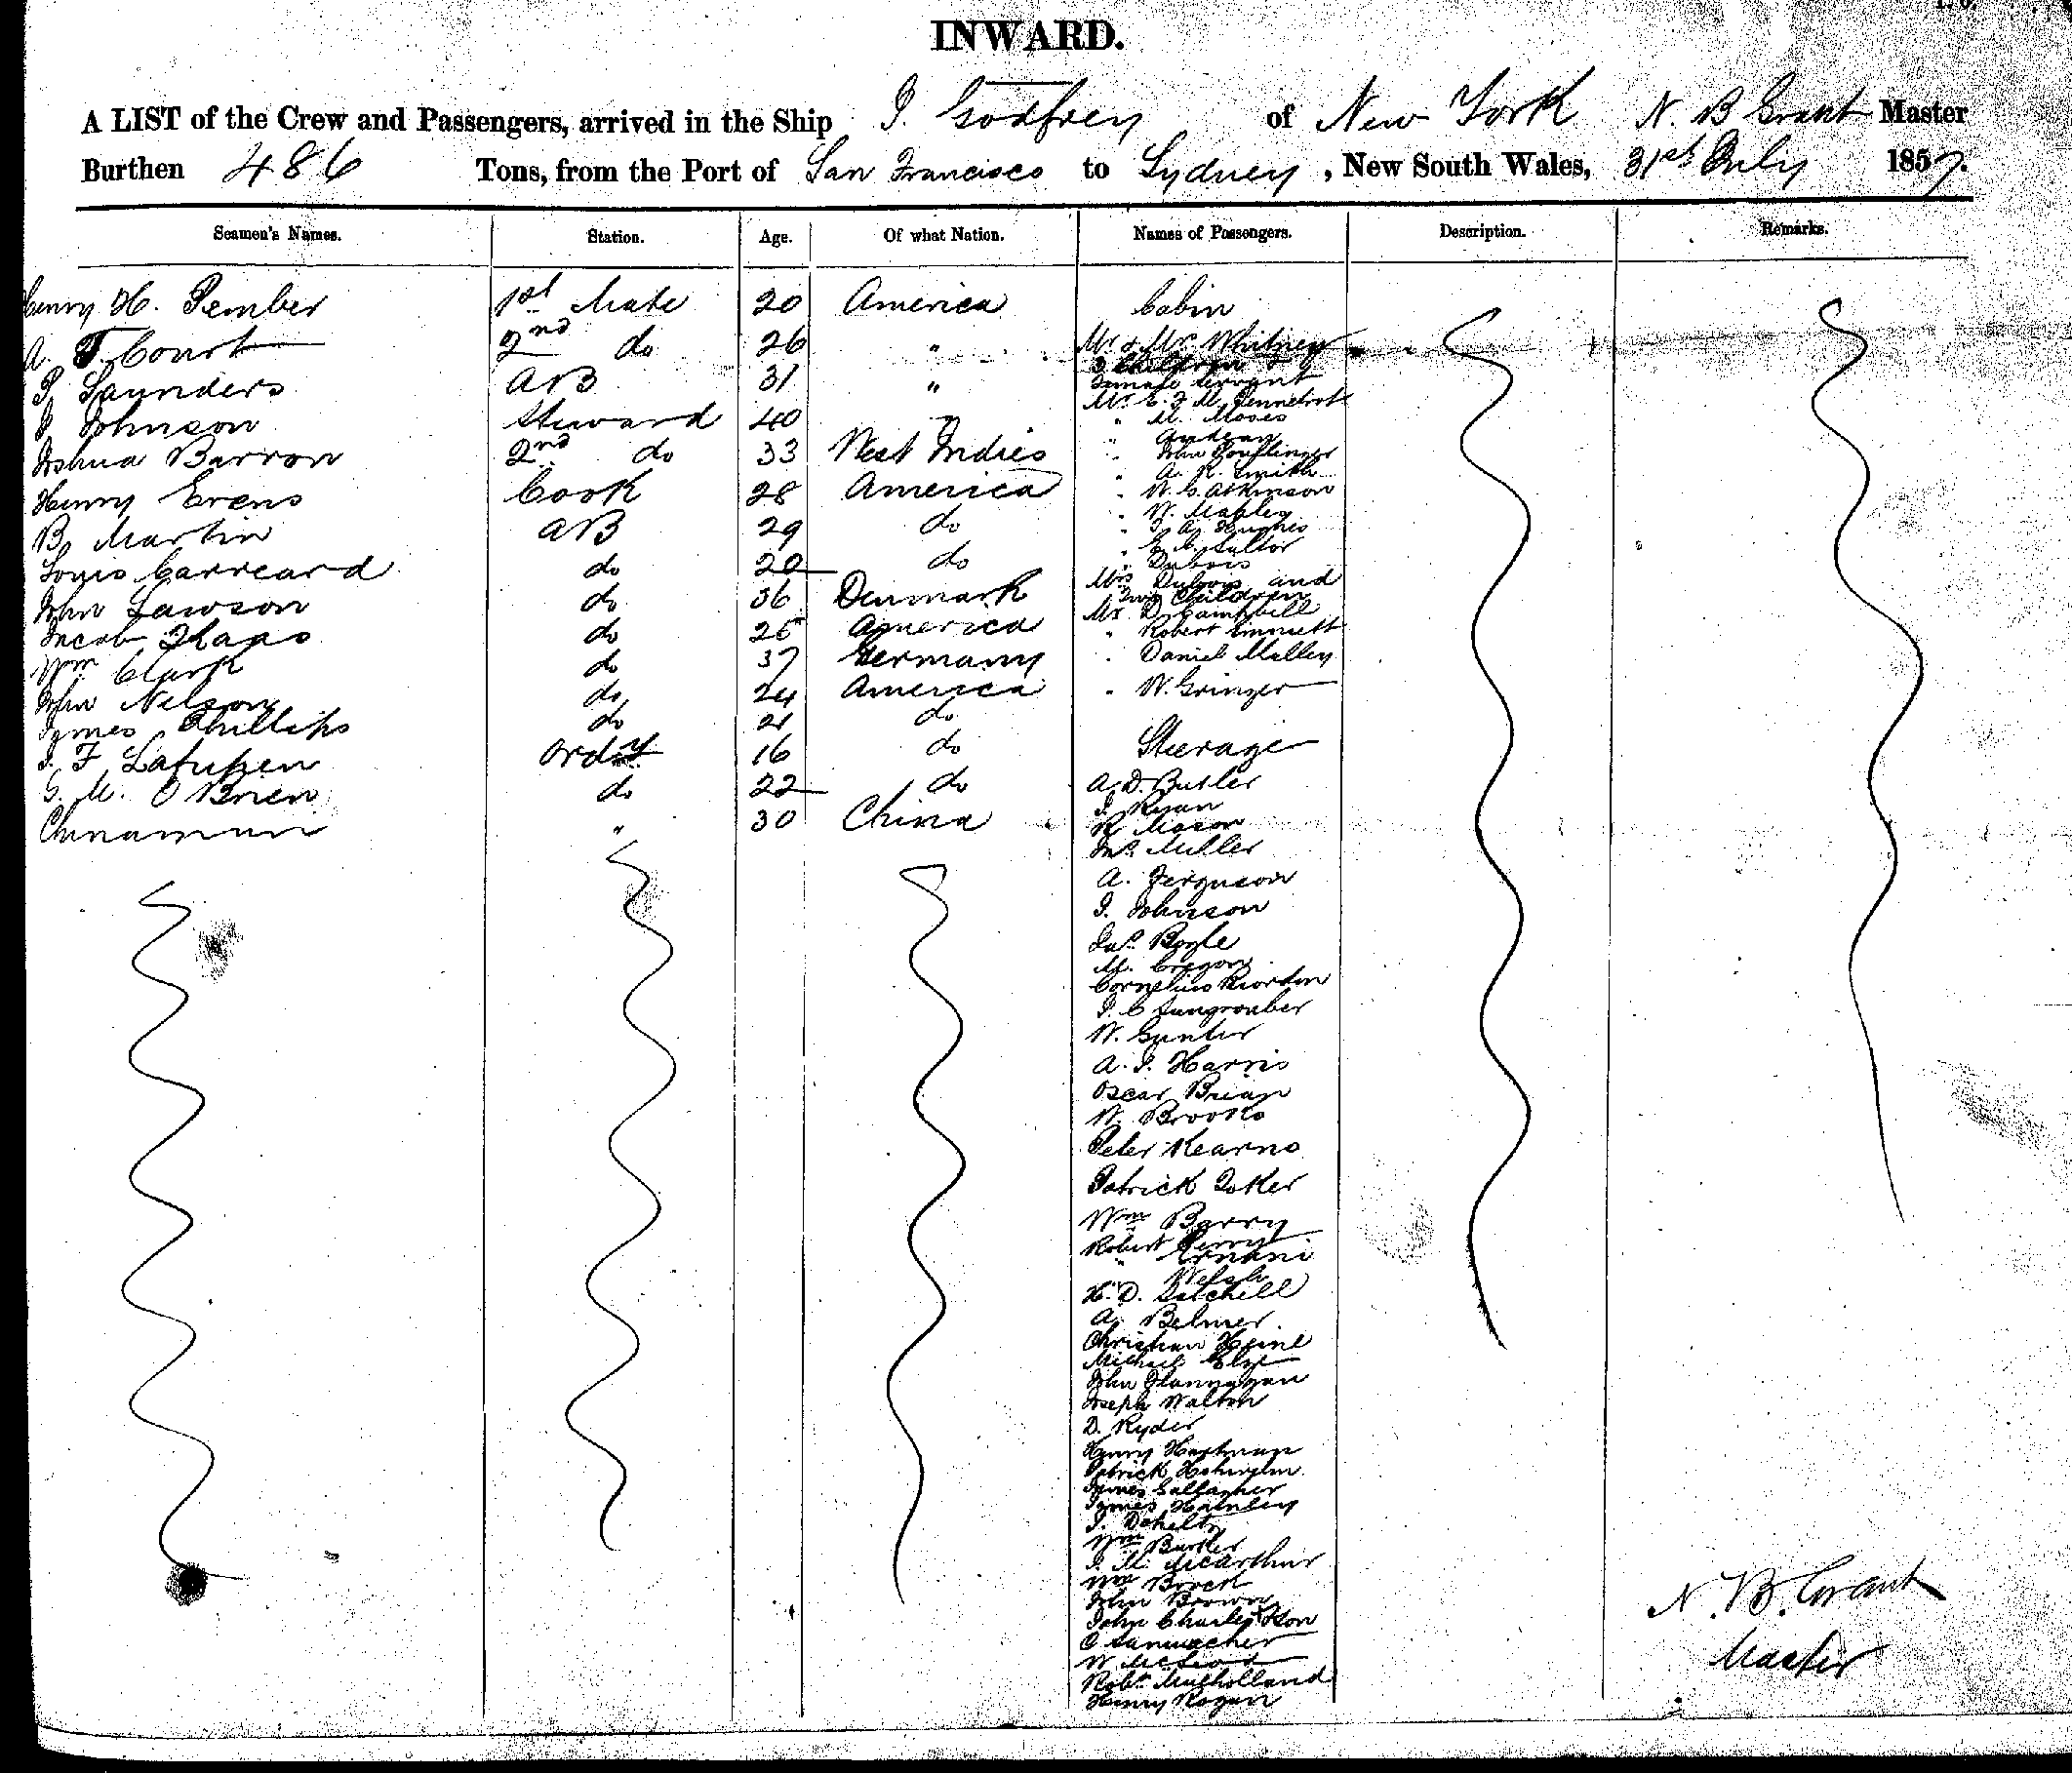 INWARD.
A LIST of the Crew and Passengers, arrived in the Ship J. Godfrey of New York N. B Grant Master
Burthen 486 Tons, from the Port of San Francisco to Sydney, New South Wales, 31st July 1857.
Seamen's Names. Station. Age. Of what Nation. Names of Passengers. Description. Remarks.
Henry H. Pember 1st Mate 20 America
A. T. Court 2nd do 26 "
P. Saunders AB 31 "
J Johnson Steward 40 "
Joshua Barron 2nd do 33 West Indies
Henry Evens Cook 28 America
B. Martin AB 29 do
Louis Carreard do 20 do
John Lawson do 36 Denmark
Jacob do 25 America
Wm Clark do 37 Germany
John Nelson do 24 America
James Phillips do 21 do
J. F Ordy 16 do
G. M. O Brien do 22 do
Chinamun " 30 China
Cabin
Mr & Mrs Whitney
3 Children &
Female Servant
Mr E. F. M.
" M. Moses
"
" John
" A. R. Smith
" W. G. Atkinson
" W. Mabley
" J. A. Hughes
" E. C.
" Dubois
Mrs Dubois and
Two Children
Mr D. Campbell
" Robert Emmett
" Daniel Malley
" W. Grinzer
Steerage
A. D. Butler
J. Ryan
R Mason
Jas. Miller
A. Ferguson
J. Johnson
Jas. Bogle
M. Gregory
Cornelius Riordan
J. C Sungrouber
W. Gunter
A. J. Harris
Oscar Brian
W. Brooks
Peter Kearns
Patrick
Wm Barry
Robert Perry
" Ernani
Welsh
H. D. Satchell
A. Belmer.
Christian
Michael
John Flannagan
Joseph Walton
D. Ryder
Henry Hartman
Patrick
James Gallagher
James Hainley
J.
Wm Butler
J. M. McArthur
Wm Brock
John Brown
John Charles
C
W McLeod
Robt Mulholland
Henry Rogan
N. B. Grant
Master